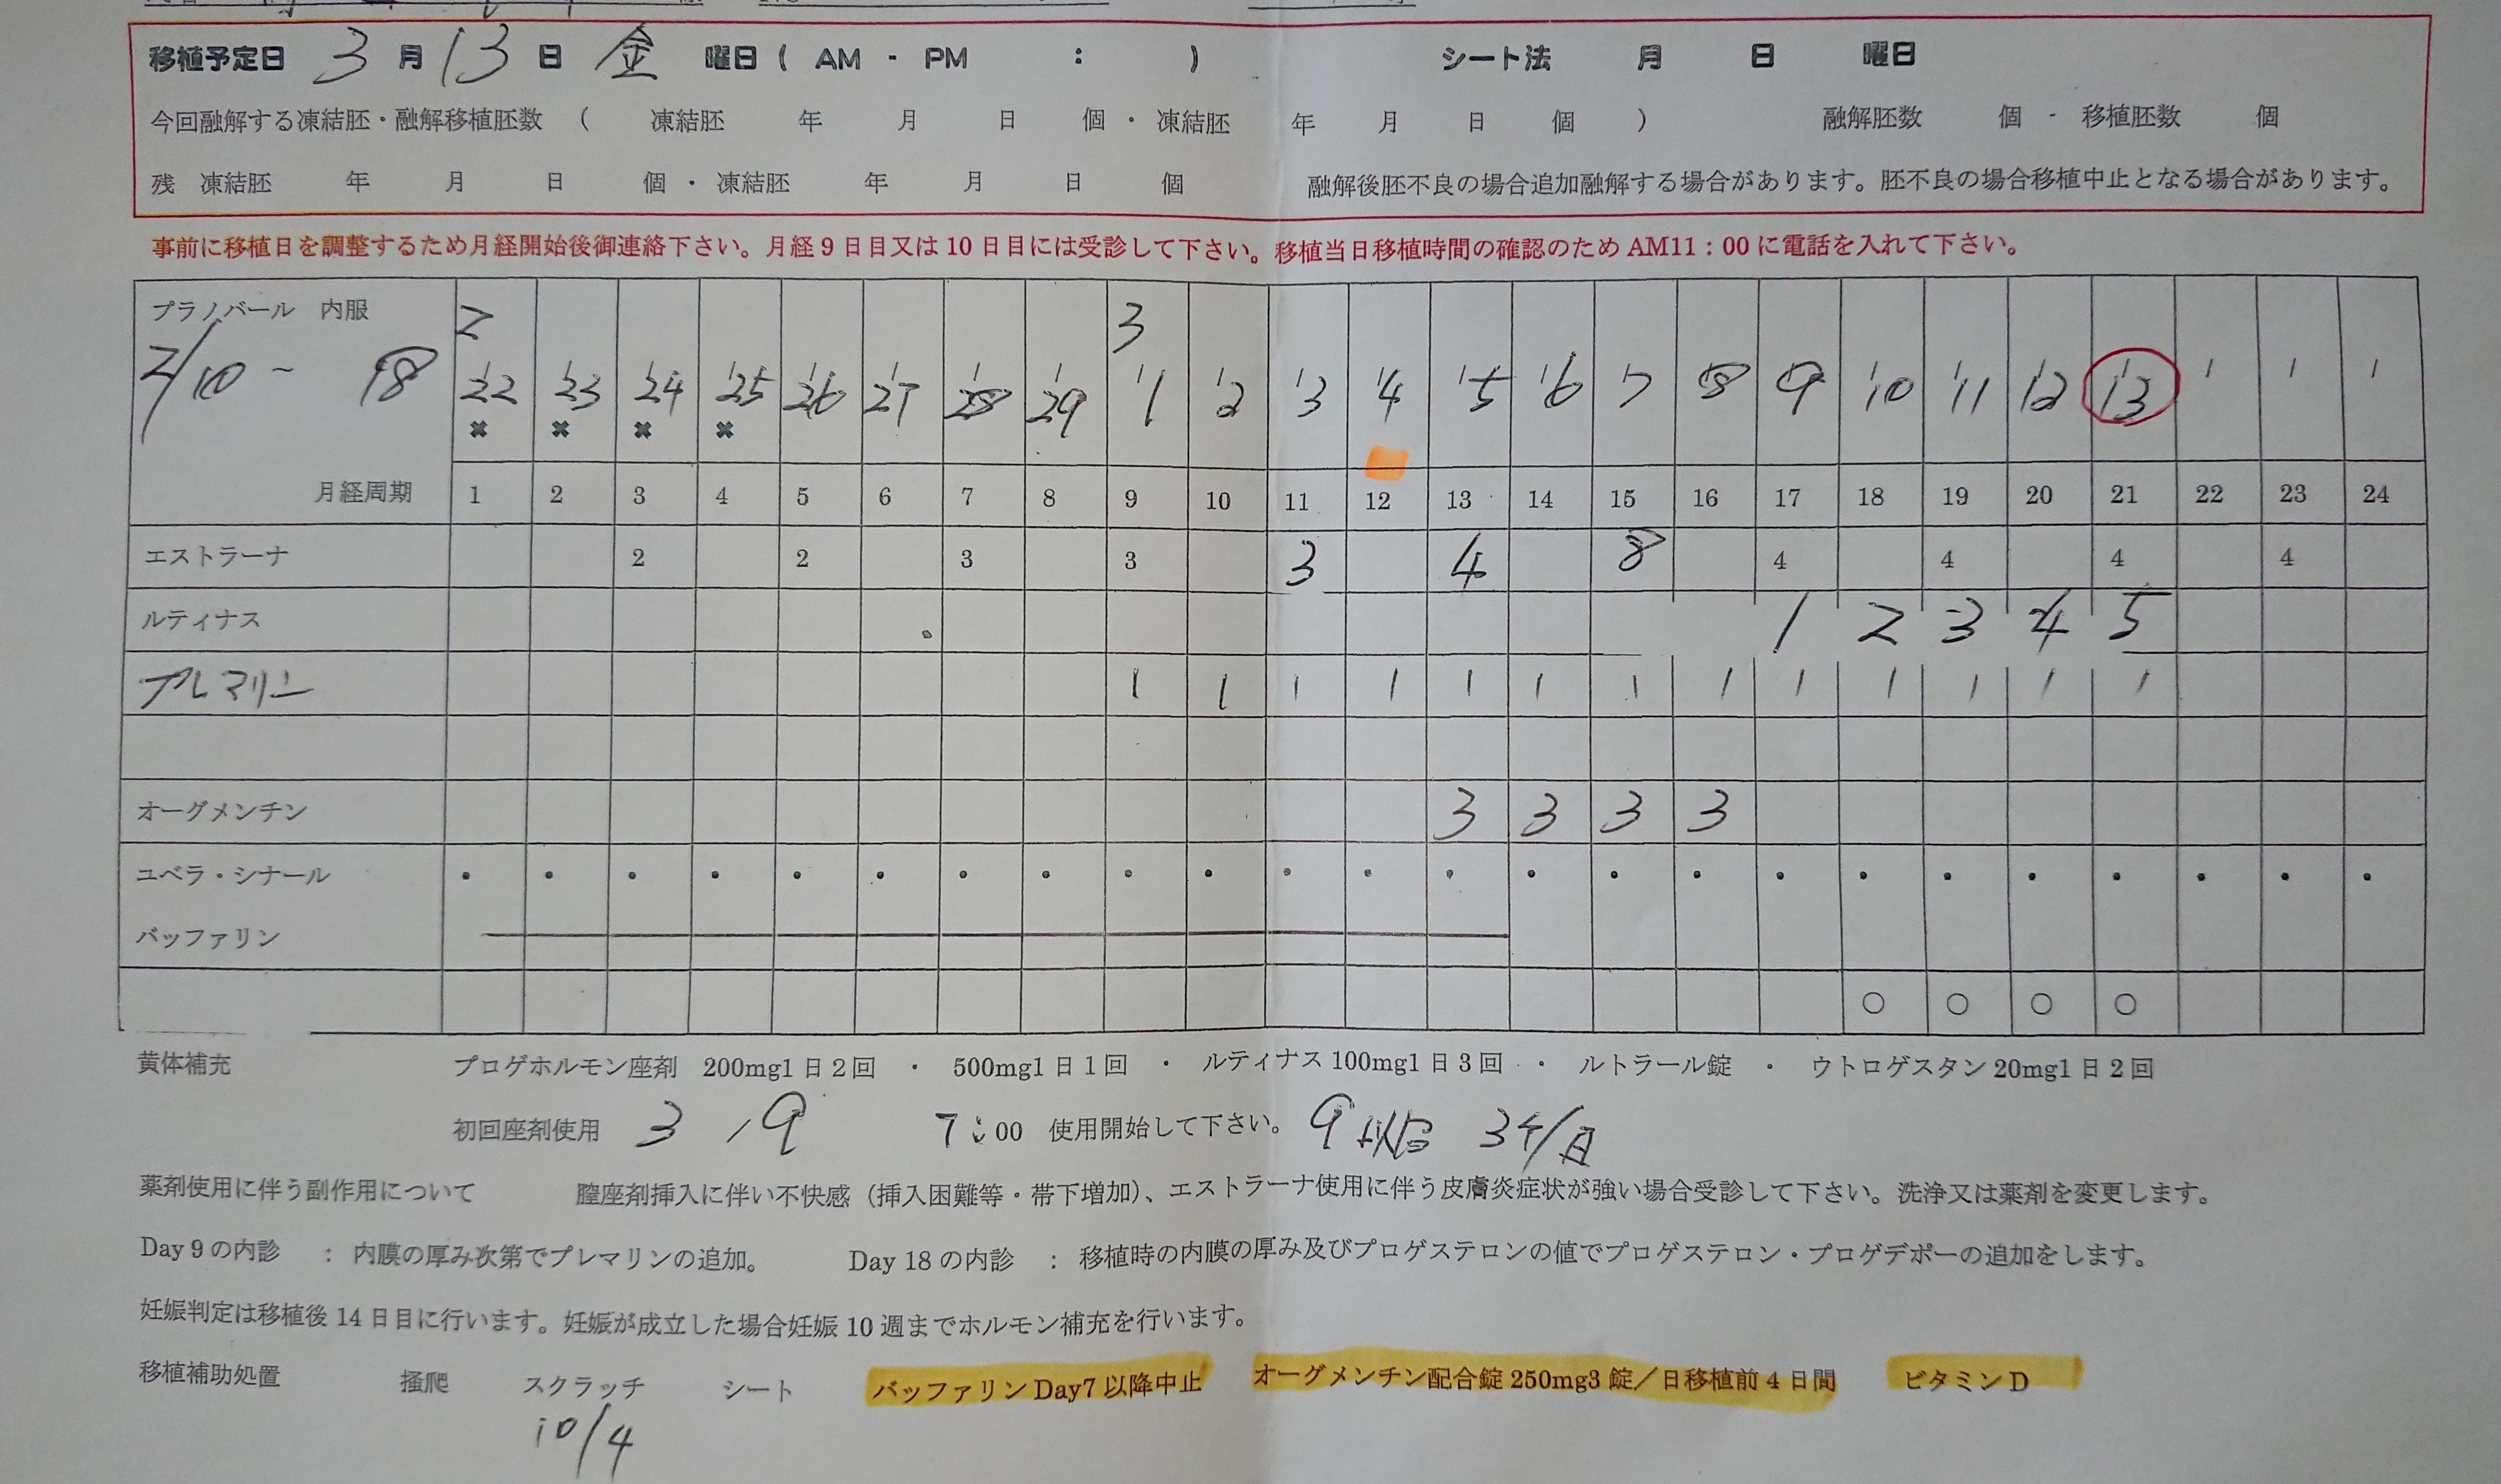 移植予定日 3 月 13 日 金 曜日( AM - PM : ) シート法 月 日 曜日
今回融解する凍結胚・融解移植胚数 ( 凍結胚 年 月 日 個 ・ 凍結胚 年 月 日 個 ) 融解胚数 個 - 移植胚数 個
残 凍結胚 年 月 日 個 ・ 凍結胚 年 月 日 個 融解後胚不良の場合追加融解する場合があります。胚不良の場合移植中止となる場合があります。
事前に移植日を調整するため月経開始後御連絡下さい。月経9日目又は10日目には受診して下さい。移植当日移植時間の確認のためAM11:00に電話を入れて下さい。
プラノバール 内服 2 3
2/10 ~ 18 22 23 24 25 26 27 28 29 1 2 3 4 5 6 7 8 9 10 11 12 13 / / /
✖ ✖ ✖ ✖
月経周期 1 2 3 4 5 6 7 8 9 10 11 12 13 14 15 16 17 18 19 20 21 22 23 24
エストラーナ 2 2 3 3 3 4 8 4 4 4 4
ルティナス 1 2 3 4 5
プレマリン 1 1 1 1 1 1 1 1 1 1 1 1 1
オーグメンチン 3 3 3 3
ユベラ・シナール ・ ・ ・ ・ ・ ・ ・ ・ ・ ・ ・ ・ ・ ・ ・ ・ ・ ・ ・ ・ ・ ・ ・ ・
バッファリン
○ ○ ○ ○
黄体補充 プロゲホルモン座剤 200mg1日2回 ・ 500mg1日1回 ・ ルティナス100mg1日3回 ・ ルトラール錠 ・ ウトロゲスタン20mg1日2回
初回座剤使用 3 / 9 7:00 使用開始して下さい。 9以后 3ケ/日
薬剤使用に伴う副作用について 膣座剤挿入に伴い不快感(挿入困難等・帯下増加)、エストラーナ使用に伴う皮膚炎症状が強い場合受診して下さい。洗浄又は薬剤を変更します。
Day9の内診 : 内膜の厚み次第でプレマリンの追加。 Day18の内診 : 移植時の内膜の厚み及びプロゲステロンの値でプロゲステロン・プロゲデポーの追加をします。
妊娠判定は移植後14日目に行います。妊娠が成立した場合妊娠10週までホルモン補充を行います。
移植補助処置 掻爬 スクラッチ シート バッファリンDay7以降中止 オーグメンチン配合錠250mg3錠/日移植前4日間 ビタミンD
10/4